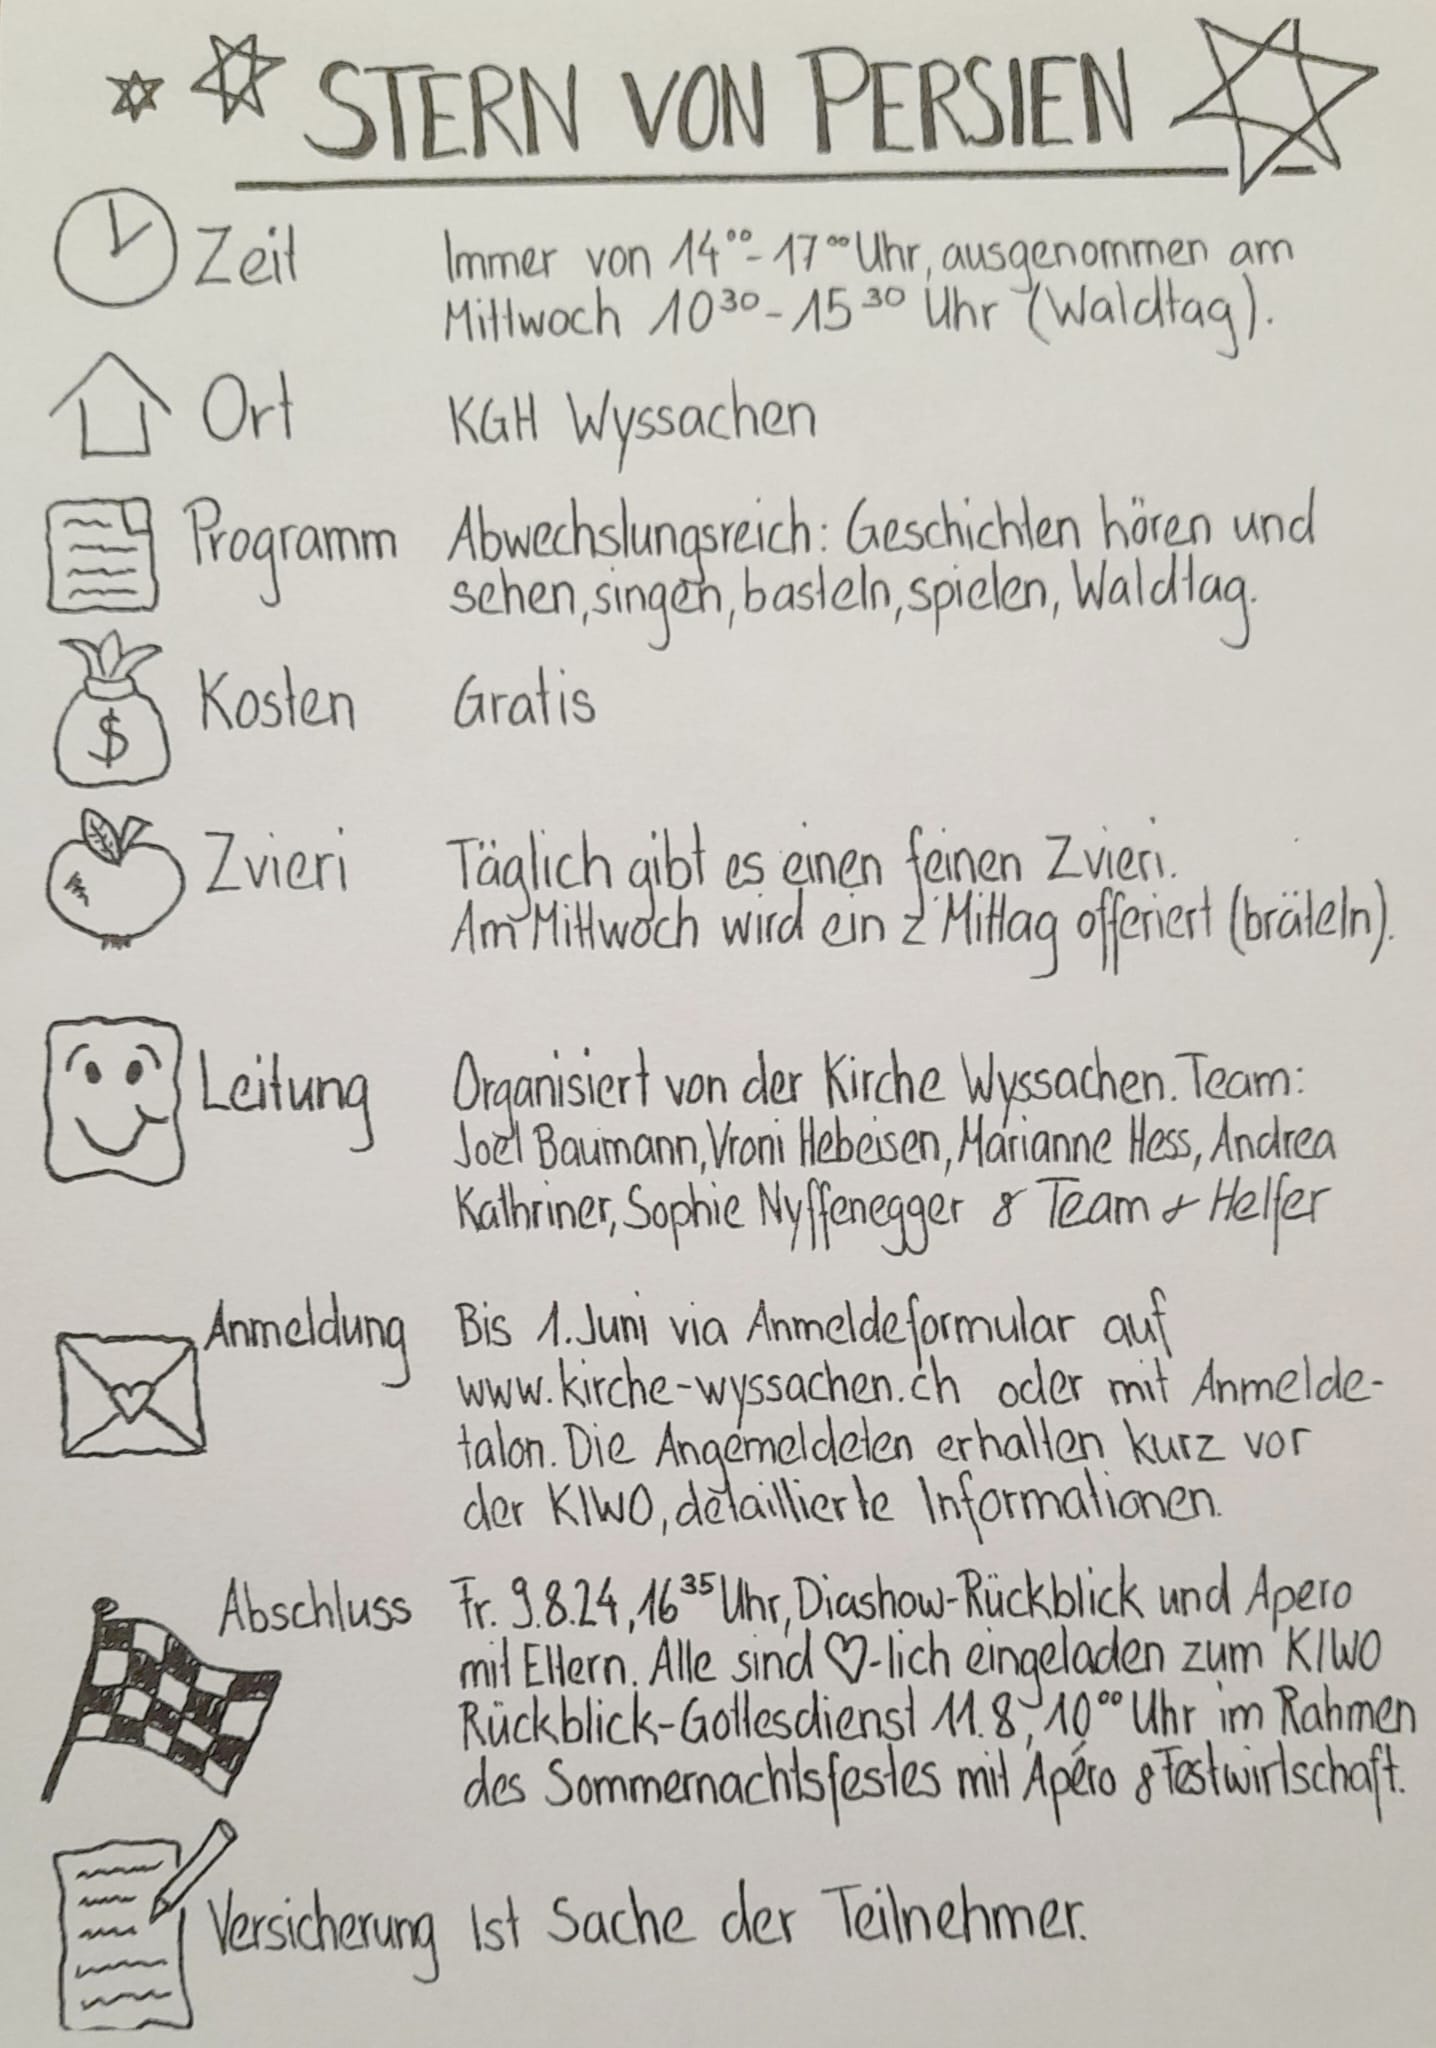 STERN VON PERSIEN
Zeit
Immer von 14⁰⁰-17⁰⁰ Uhr, ausgenommen am
Mittwoch 10³⁰-15³⁰ Uhr (Waldtag).
Ort
KGH Wyssachen
Programm
Abwechslungsreich: Geschichten hören und
sehen, singen, basteln, spielen, Waldtag.
$
Kosten
Gratis
Zvieri
Täglich gibt es einen feinen Zvieri.
Am Mittwoch wird ein z'Mittag offeriert (bräteln).
Leitung
Organisiert von der Kirche Wyssachen. Team:
Joël Baumann, Vroni Hebeisen, Marianne Hess, Andrea
Kathriner, Sophie Nyffenegger & Team + Helfer
Anmeldung
Bis 1. Juni via Anmeldeformular auf
www.kirche-wyssachen.ch oder mit Anmelde-
talon. Die Angemeldeten erhalten kurz vor
der KIWO, detaillierte Informationen.
Abschluss
Fr. 9.8.24, 16³⁵ Uhr, Diashow-Rückblick und Apero
mit Eltern. Alle sind ♡-lich eingeladen zum KIWO
Rückblick-Gottesdienst 11.8, 10⁰⁰ Uhr im Rahmen
des Sommernachtsfestes mit Apéro & Festwirtschaft.
Versicherung
Ist Sache der Teilnehmer.